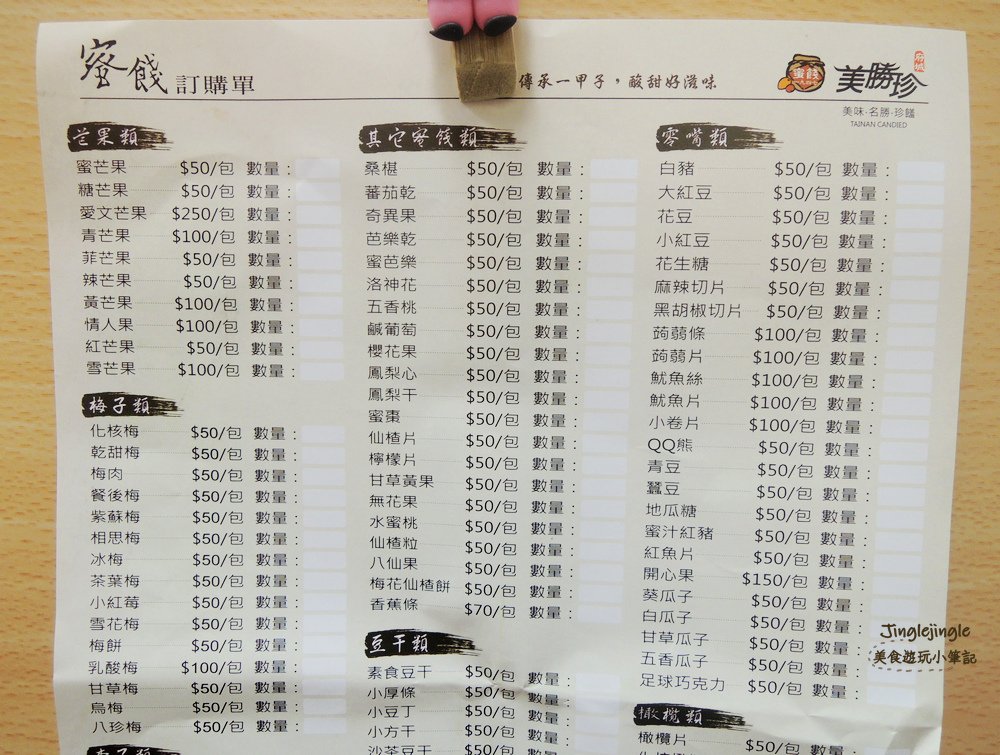 蜜餞訂購單
傳承一甲子，酸甜好滋味
蜜餞
府城
美勝珍
美味·名勝·珍饈
TAINAN CANDIED
芒果類
蜜芒果 $50/包 數量：
糖芒果 $50/包 數量：
愛文芒果 $250/包 數量：
青芒果 $100/包 數量：
菲芒果 $50/包 數量：
辣芒果 $50/包 數量：
黃芒果 $100/包 數量：
情人果 $100/包 數量：
紅芒果 $50/包 數量：
雪芒果 $100/包 數量：
梅子類
化核梅 $50/包 數量：
乾甜梅 $50/包 數量：
梅肉 $50/包 數量：
餐後梅 $50/包 數量：
紫蘇梅 $50/包 數量：
相思梅 $50/包 數量：
冰梅 $50/包 數量：
茶葉梅 $50/包 數量：
小紅莓 $50/包 數量：
雪花梅 $50/包 數量：
梅餅 $50/包 數量：
乳酸梅 $100/包 數量：
甘草梅 $50/包 數量：
烏梅 $50/包 數量：
八珍梅 $50/包 數量：
其它蜜餞類
桑椹 $50/包 數量：
蕃茄乾 $50/包 數量：
奇異果 $50/包 數量：
芭樂乾 $50/包 數量：
蜜芭樂 $50/包 數量：
洛神花 $50/包 數量：
五香桃 $50/包 數量：
鹹葡萄 $50/包 數量：
櫻花果 $50/包 數量：
鳳梨心 $50/包 數量：
鳳梨干 $50/包 數量：
蜜棗 $50/包 數量：
仙楂片 $50/包 數量：
檸檬片 $50/包 數量：
甘草黃果 $50/包 數量：
無花果 $50/包 數量：
水蜜桃 $50/包 數量：
仙楂粒 $50/包 數量：
八仙果 $50/包 數量：
梅花仙楂餅 $50/包 數量：
香蕉條 $70/包 數量：
豆干類
素食豆干 $50/包 數量：
小厚條 $50/包 數量：
小豆丁 $50/包 數量：
小方干 $50/包 數量：
沙茶豆干 $50/包 數量：
零嘴類
白豬 $50/包 數量：
大紅豆 $50/包 數量：
花豆 $50/包 數量：
小紅豆 $50/包 數量：
花生糖 $50/包 數量：
麻辣切片 $50/包 數量：
黑胡椒切片 $50/包 數量：
蒟蒻條 $100/包 數量：
蒟蒻片 $100/包 數量：
魷魚絲 $100/包 數量：
魷魚片 $100/包 數量：
小卷片 $100/包 數量：
QQ熊 $50/包 數量：
青豆 $50/包 數量：
蠶豆 $50/包 數量：
地瓜糖 $50/包 數量：
蜜汁紅豬 $50/包 數量：
紅魚片 $50/包 數量：
開心果 $150/包 數量：
葵瓜子 $50/包 數量：
白瓜子 $50/包 數量：
甘草瓜子 $50/包 數量：
五香瓜子 $50/包 數量：
足球巧克力 $50/包 數量：
橄欖類
橄欖片 $50/包 數量：
Jinglejingle
美食遊玩小筆記